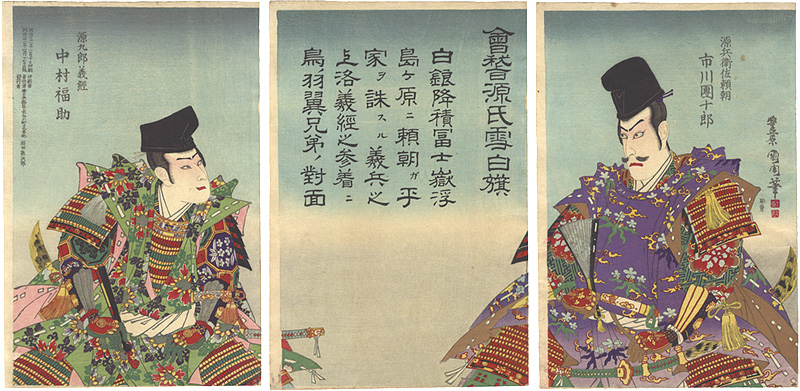 源兵衛佐頼朝
市川團十郎
豊原國周筆
會稽源氏雪白旗
白銀降積冨士嶽浮
島ヶ原ニ頼朝ガ平
家ヲ誅スル義兵之
上洛義經之参着ニ
鳥羽翼兄弟ノ對面
源九郎義經
中村福助